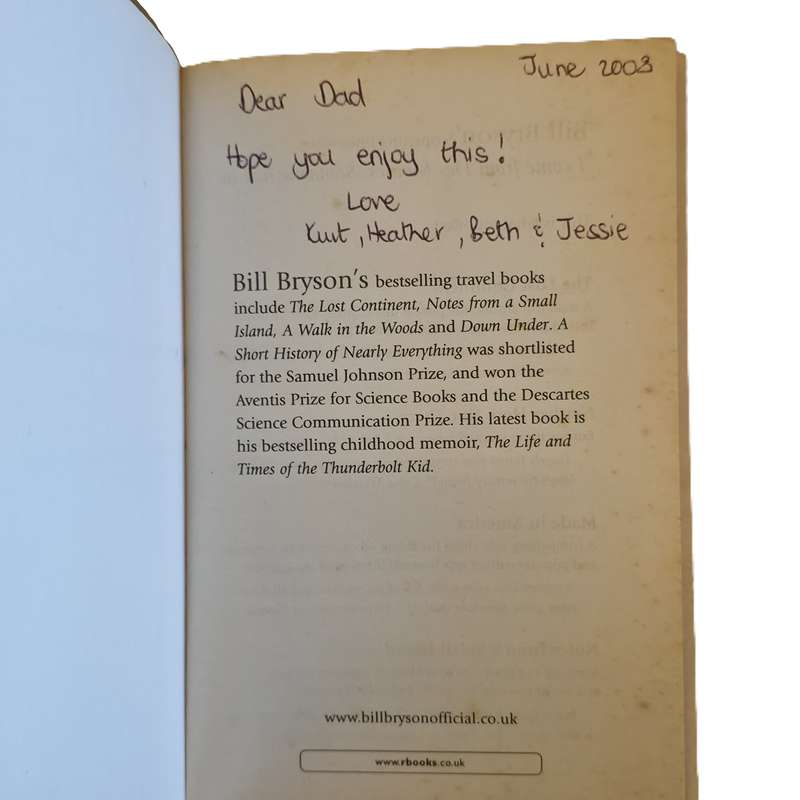 June 2008
Dear Dad
Hope you enjoy this!
Love
Kurt, Heather, Beth & Jessie
Bill Bryson's bestselling travel books
include The Lost Continent, Notes from a Small
Island, A Walk in the Woods and Down Under. A
Short History of Nearly Everything was shortlisted
for the Samuel Johnson Prize, and won the
Aventis Prize for Science Books and the Descartes
Science Communication Prize. His latest book is
his bestselling childhood memoir, The Life and
Times of the Thunderbolt Kid.
www.billbrysonofficial.co.uk
www.rbooks.co.uk